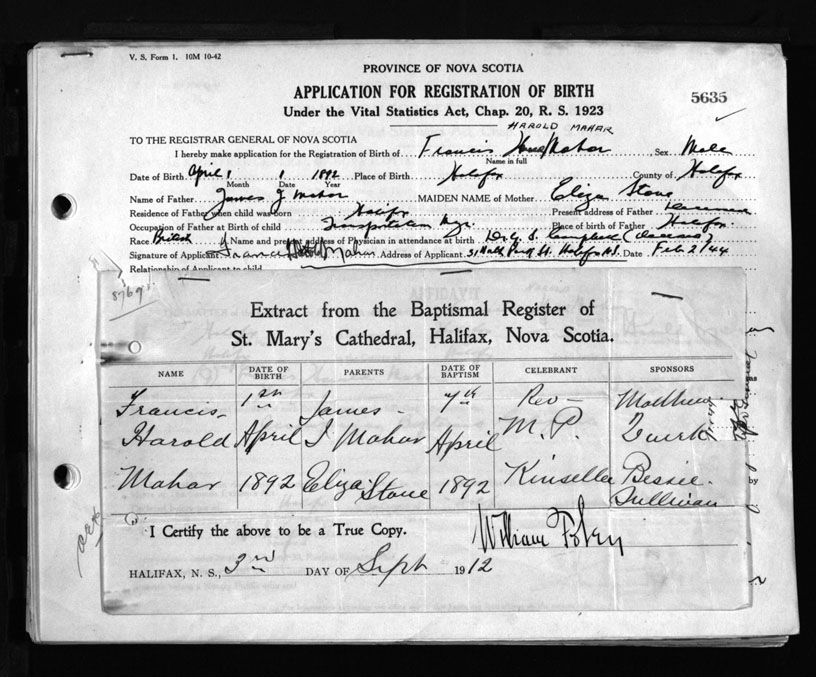 V. S. Form 1. 10M 10-42
PROVINCE OF NOVA SCOTIA
APPLICATION FOR REGISTRATION OF BIRTH
5635
Under the Vital Statistics Act, Chap. 20, R. S. 1923
HAROLD MAHAR
TO THE REGISTRAR GENERAL OF NOVA SCOTIA
I hereby make application for the Registration of Birth of Francis Mahar Sex Male
Name in full
Date of Birth April 1 1892 Place of Birth Halifax County of Halifax
Month Date Year
Name of Father James J Mahar MAIDEN NAME of Mother Eliza Stone
Residence of Father when child was born Halifax Present address of Father Deceased
Occupation of Father at Birth of child Transportation Mgr. Place of birth of Father Halifax
Race British Name and present address of Physician in attendance at birth (Deceased)
Signature of Applicant Francis Harold Mahar Address of Applicant Halifax N.S. Date Feb 2/44
Relationship of Applicant to child
Extract from the Baptismal Register of
St. Mary's Cathedral, Halifax, Nova Scotia.
NAME DATE OF BIRTH PARENTS DATE OF BAPTISM CELEBRANT SPONSORS
Francis 1st James 7th Rev Matthew
Harold April J Mahar April M. P. Quirk
Mahar 1892 Eliza Stone 1892 Kinsella Bessie
Sullivan
I Certify the above to be a True Copy. William Foley
HALIFAX, N. S., 3rd DAY OF Sept 1912